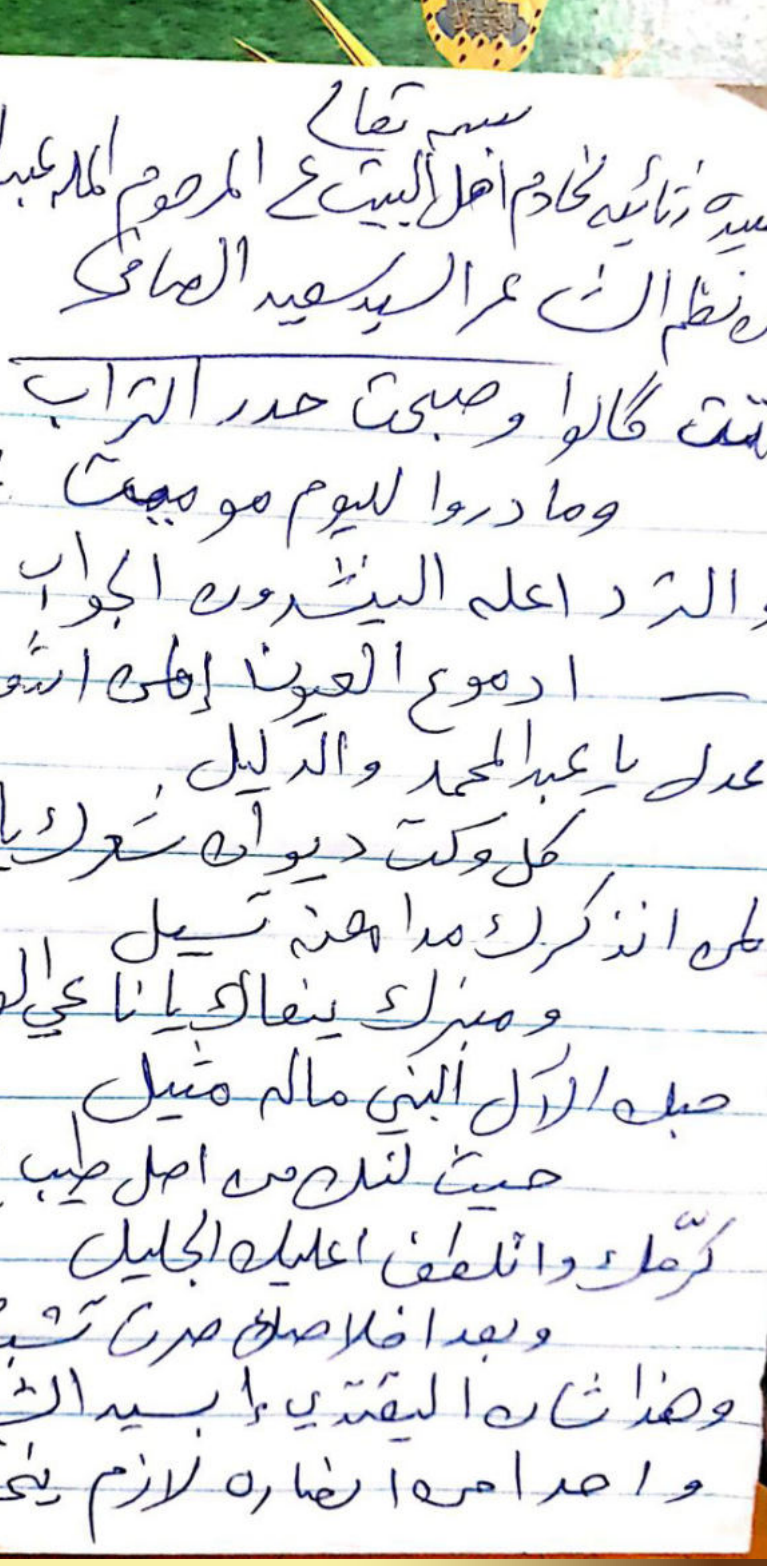 بسمه تعالى
رثائيه لخادم اهل البيت ع المرحوم المله عبد
نظم الشاعر السيد سعيد الصافي
متت گالوا وصبحت حدر التراب
وما دروا لليوم مو ميت
والترد اعله الينشدون الجواب
ادموع العيون
عدل يا عبد المحمد والدليل
كل وكت ديوان شعرك
لمن انذكرك مدامعنه تسيل
ومنبرك ينعاك يا ناعي
حبك لآل النبي ماله مثيل
حيث لنك من اصل طيب
كرّمك وانلطف اعليك الجليل
وبعد اخلاصك صرت
وهذا شان اليقتدي إبسيد
واحد امن انصاره لازم